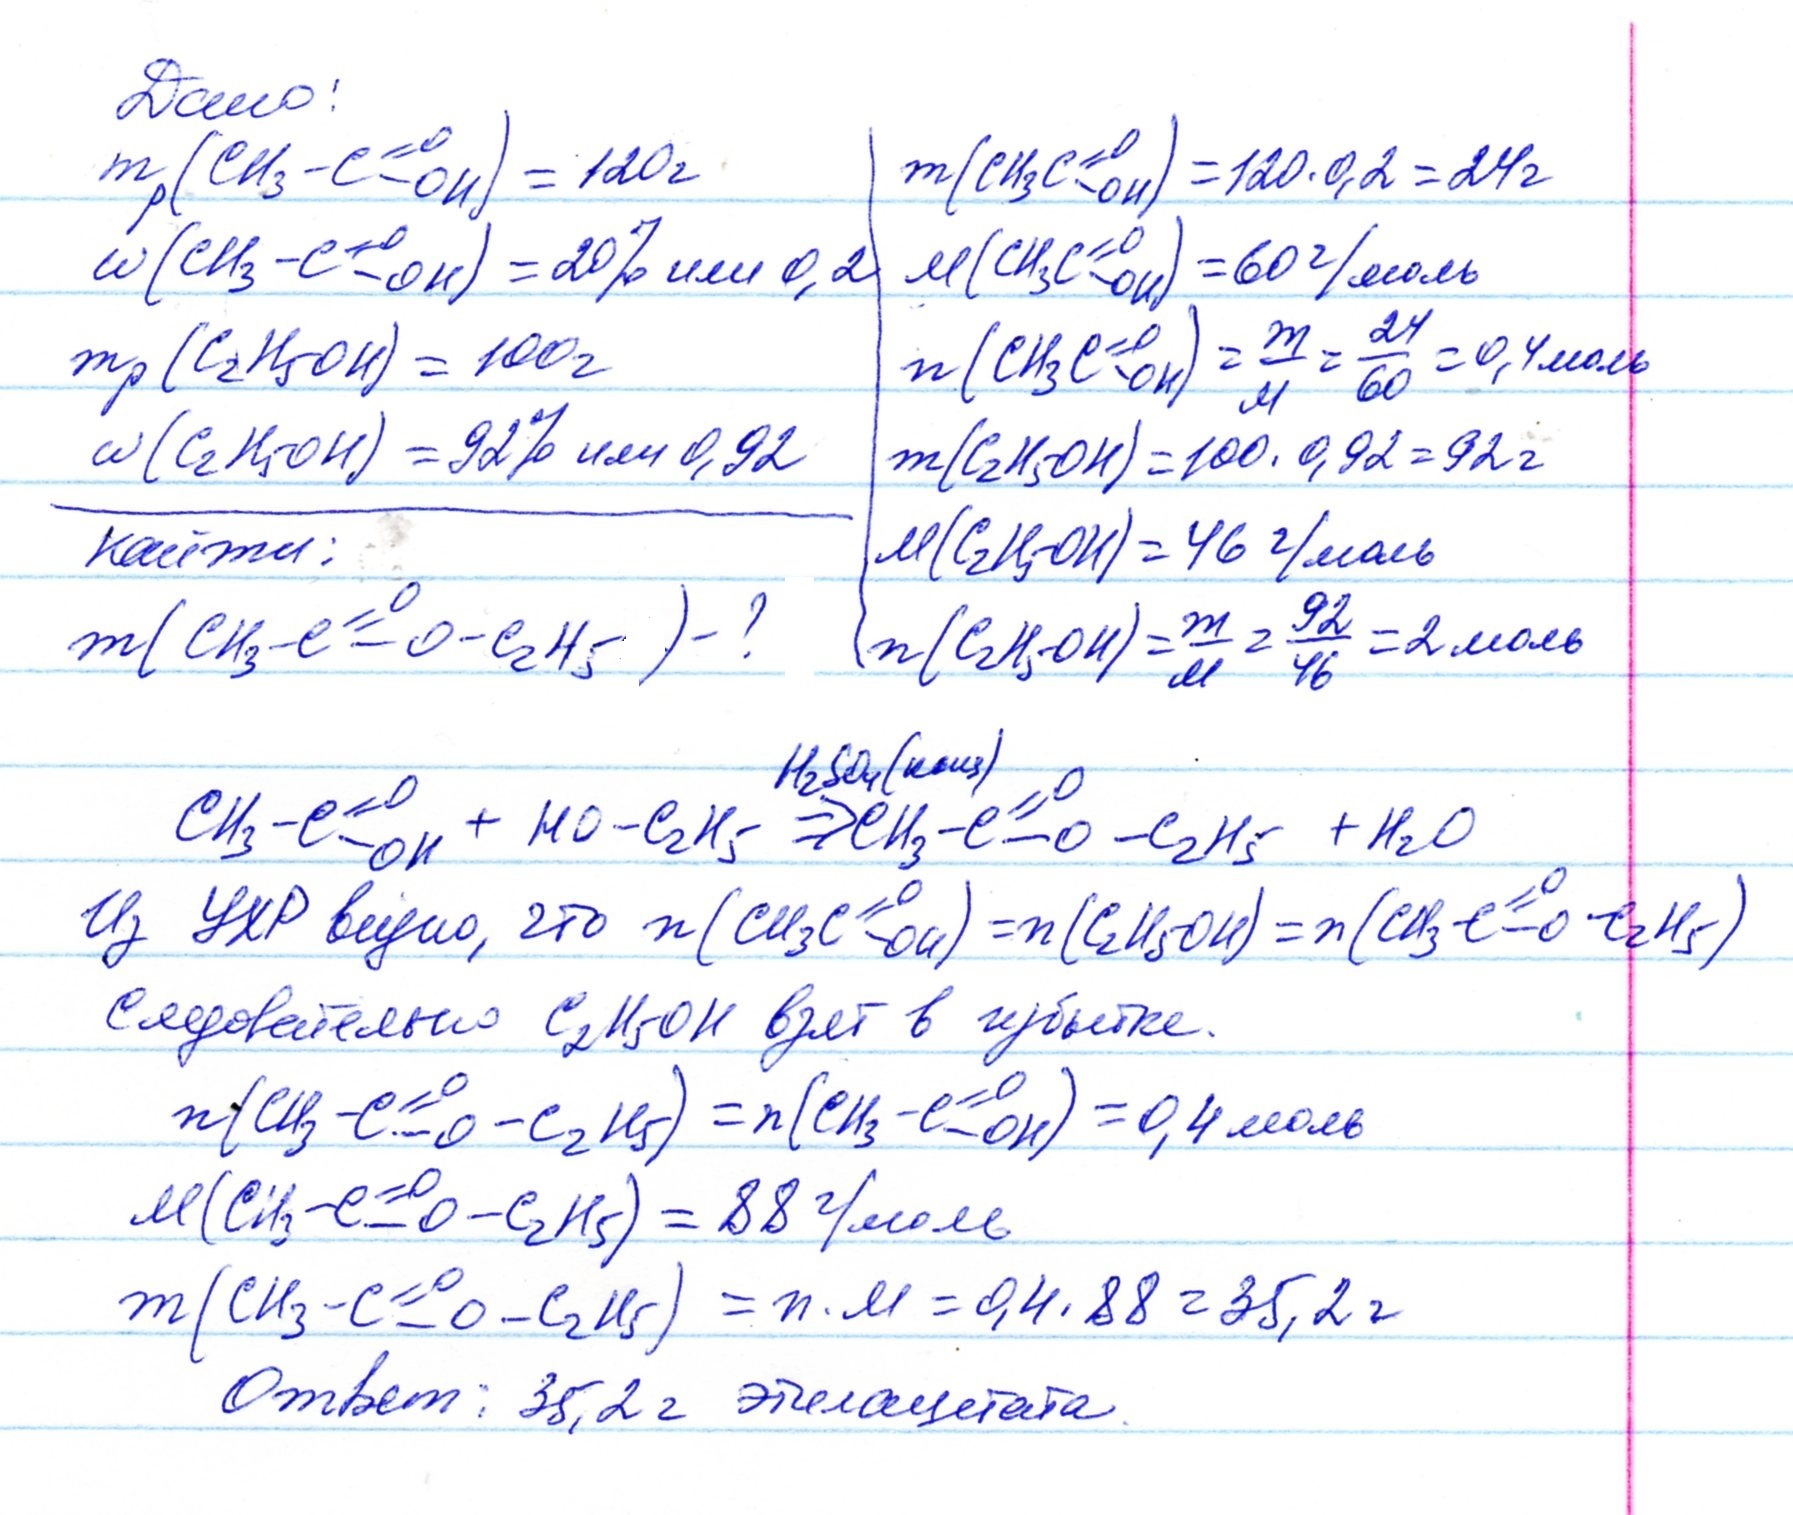 Дано:
mр(CH3-C=O-OH) = 120г
w(CH3-C=O-OH) = 20% или 0,2
mр(C2H5OH) = 100г
w(C2H5OH) = 92% или 0,92
Найти:
m(CH3-C=O-O-C2H5) - ?
m(CH3C=O-OH) = 120·0,2 = 24г
M(CH3C=O-OH) = 60 г/моль
n(CH3C=O-OH) = m/M = 24/60 = 0,4 моль
m(C2H5OH) = 100·0,92 = 92г
M(C2H5OH) = 46 г/моль
n(C2H5OH) = m/M = 92/46 = 2 моль
H2SO4(конц)
CH3-C=O-OH + HO-C2H5 ⇒ CH3-C=O-O-C2H5 + H2O
Из УХР видно, что n(CH3C=O-OH) = n(C2H5OH) = n(CH3-C=O-O-C2H5)
Следовательно C2H5OH взят в избытке.
n(CH3-C=O-O-C2H5) = n(CH3-C=O-OH) = 0,4 моль
M(CH3-C=O-O-C2H5) = 88 г/моль
m(CH3-C=O-O-C2H5) = n·M = 0,4·88 = 35,2г
Ответ: 35,2г этилацетата.